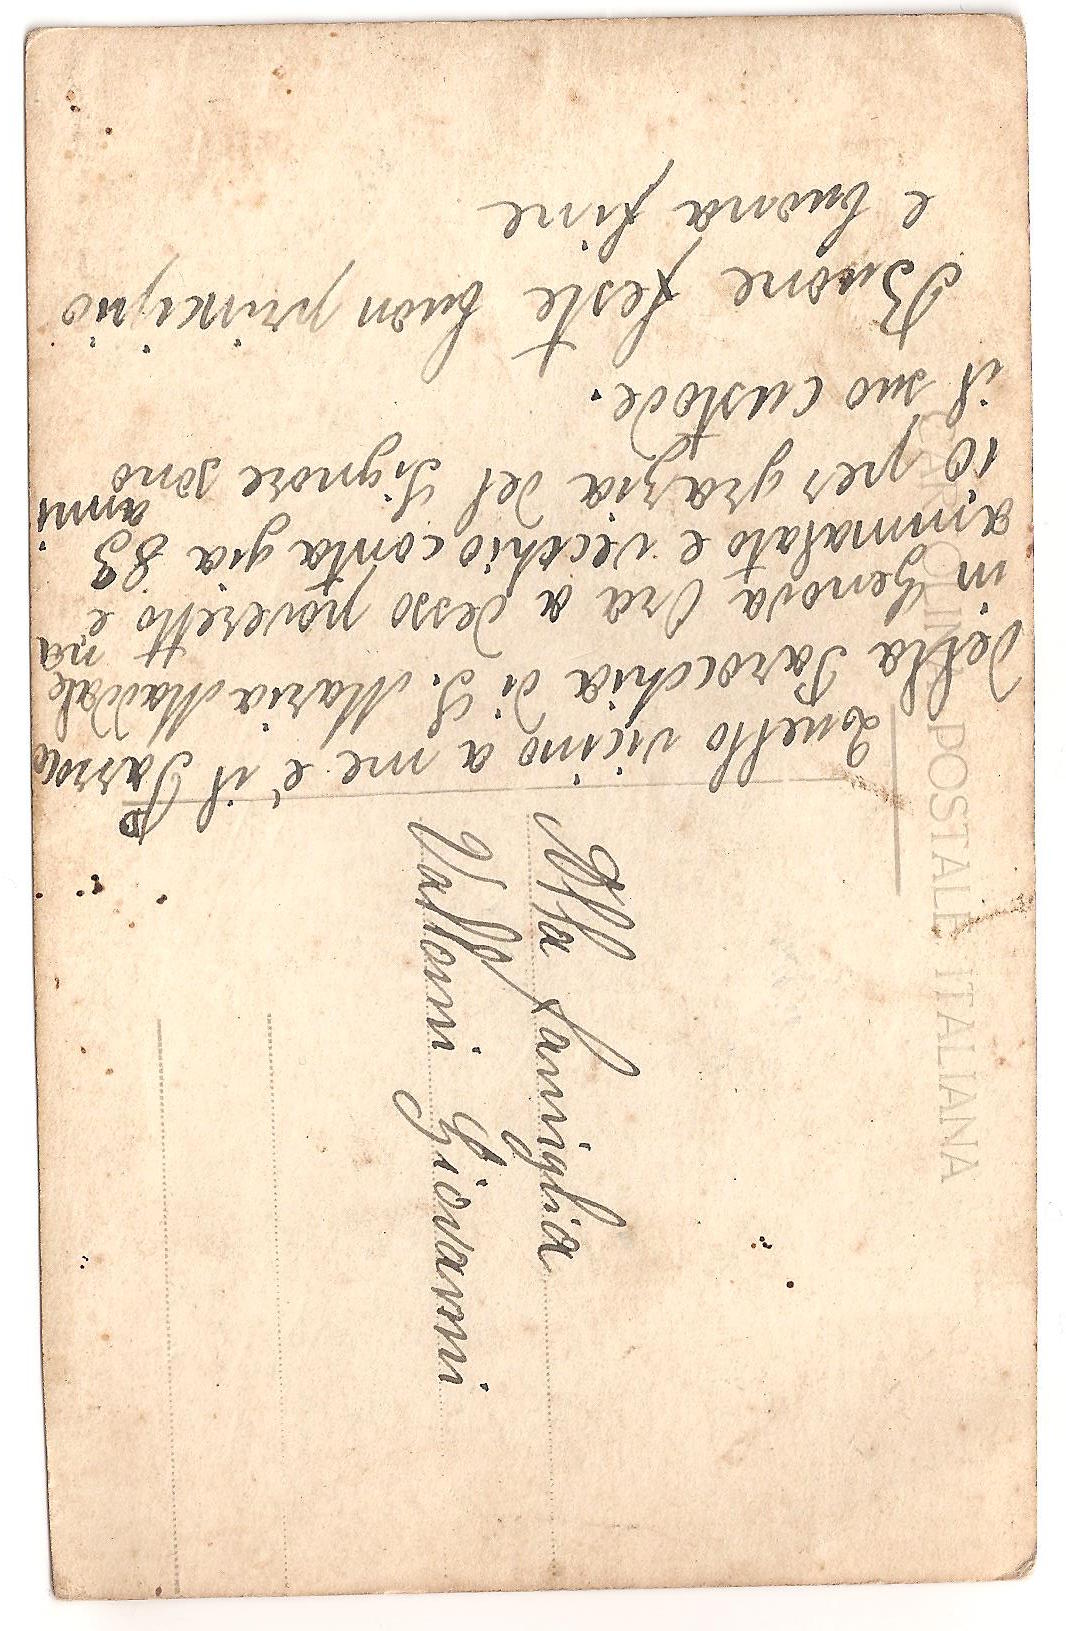 CARTOLINA POSTALE ITALIANA
Quello vicino a me e' il Parroco
della Parocchia di S. Maria Maddalena
in Genova Ora a desso poveretto e
ammalato e vecchio conta gia 83 anni
io per grazia del Signore sono
il suo custode.
Buone feste buon principio
e buona fine
Alla Famiglia
Valloni Giovanni